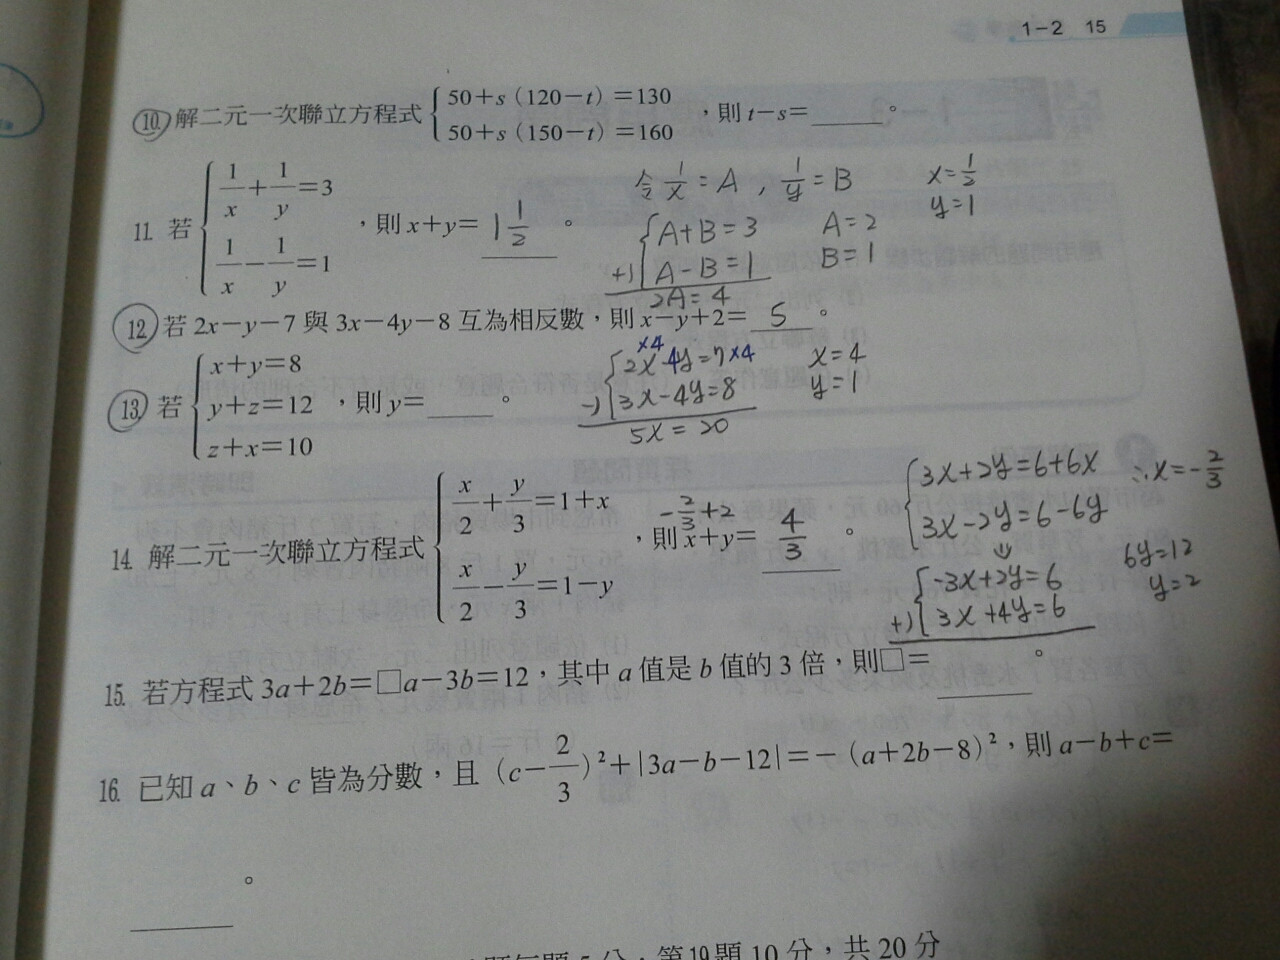 1-2 15
10. 解二元一次聯立方程式 { 50+s(120-t)=130
50+s(150-t)=160 ，則 t-s=____。
11. 若 { 1/x+1/y=3
1/x-1/y=1 ，則 x+y= 1 1/2 。
令 1/x=A , 1/y=B
x=1/2
y=1
{ A+B=3
+) A-B=1
2A=4
A=2
B=1
12. 若 2x-y-7 與 3x-4y-8 互為相反數，則 x-y+2= 5 。
×4
{ 2x-4y=7×4
-) 3x-4y=8
5x=20
x=4
y=1
13. 若 { x+y=8
y+z=12
z+x=10 ，則 y=____。
14. 解二元一次聯立方程式 { x/2+y/3=1+x
x/2-y/3=1-y ，則 x+y= 4/3 。
-2/3+2
{ 3x+2y=6+6x
3x-2y=6-6y
⇓
{ -3x+2y=6
+) 3x+4y=6
∴x=-2/3
6y=12
y=2
15. 若方程式 3a+2b=□a-3b=12，其中 a 值是 b 值的 3 倍，則□=____。
16. 已知 a、b、c 皆為分數，且 (c-2/3)²+|3a-b-12|=-(a+2b-8)²，則 a-b+c=
____。
題每題 5 分，第19題 10 分，共 20 分